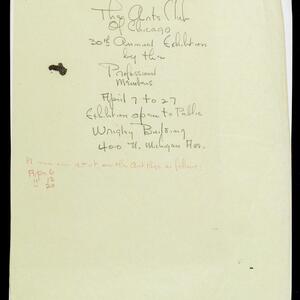 The Arts Club
Of Chicago
30th Annual Exhibition
by the
Professional
Members
April 7 to 27
Exhibition open to Public
Wrigley Building
400 N. Michigan Ave.
on the Art Page as follows:
Apr. 6
" 13
" 20